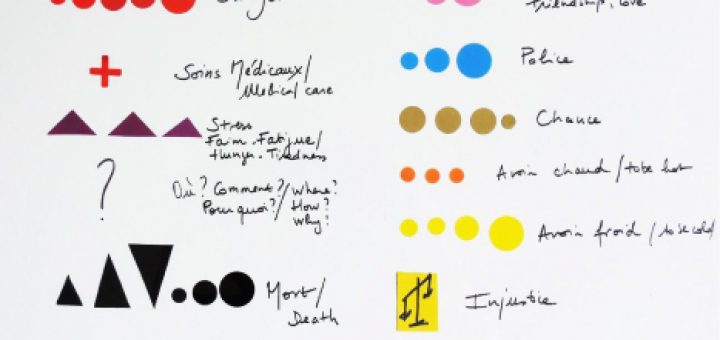 Danger
Soins Médicaux/
Medical care
Stress
Faim. Fatigue/
Hunger. Tiredness
?
Où? Comment?/Where?
Pourquoi?/How?
Why?
Mort/
Death
friendship, love
Police
Chance
Avoir chaud/to be hot
Avoir froid/to be cold/
Injustice